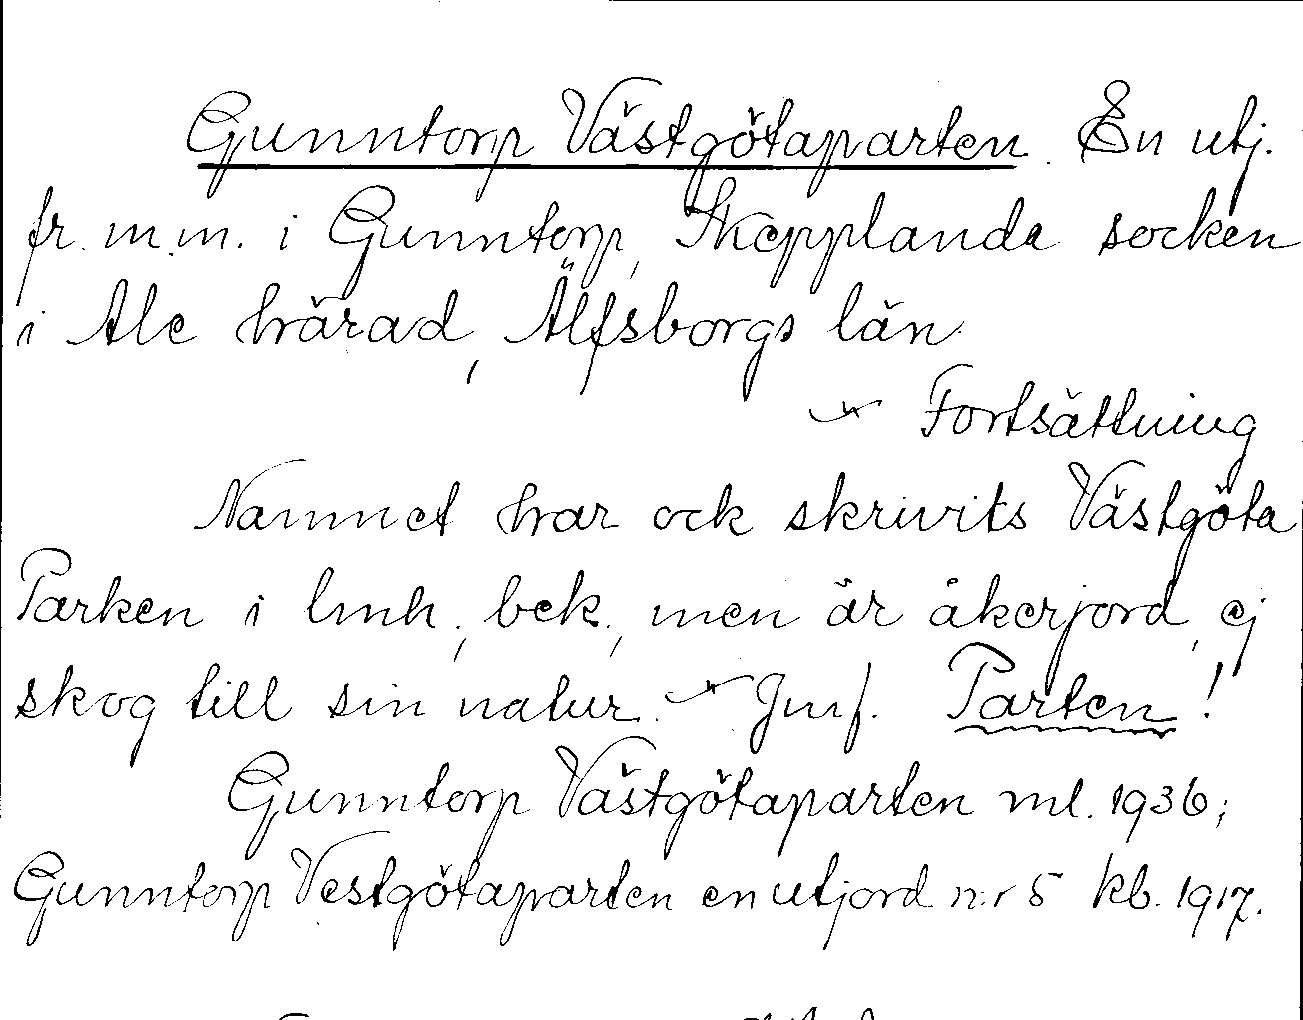 Gunntorp Västgötaparten. En utj.
fr. m.m. i Gunntorp, Skepplanda socken
i Ale härad, Älfsborgs län.
Fortsättning
Namnet har ock skrivits Västgöta
Parken i lmh; bek., men är åkerjord, ej
skog till sin natur. Jmf. Parten!
Gunntorp Västgötaparten ml. 1936;
Gunntorp Vestgötaparten en utjord nr 5 kb. 1917.